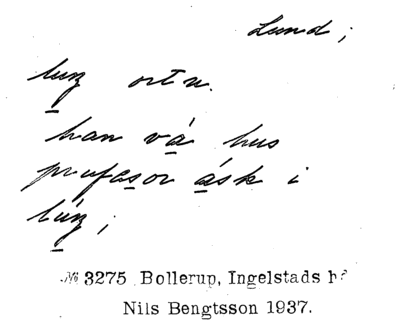 Lund;
luŋ ortn.
han vá hus
profasor ásk i
lúŋ;
№ 3275 Bollerup, Ingelstads hd
Nils Bengtsson 1937.